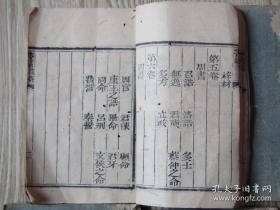 梓材
第五卷
周書
召誥 洛誥 多士
無逸 君奭 蔡仲之命
多方 立政
第六卷
周書
周官 君陳 顧命
康王之誥 畢命 君牙
冏命 呂刑 文侯之命
費誓 秦誓